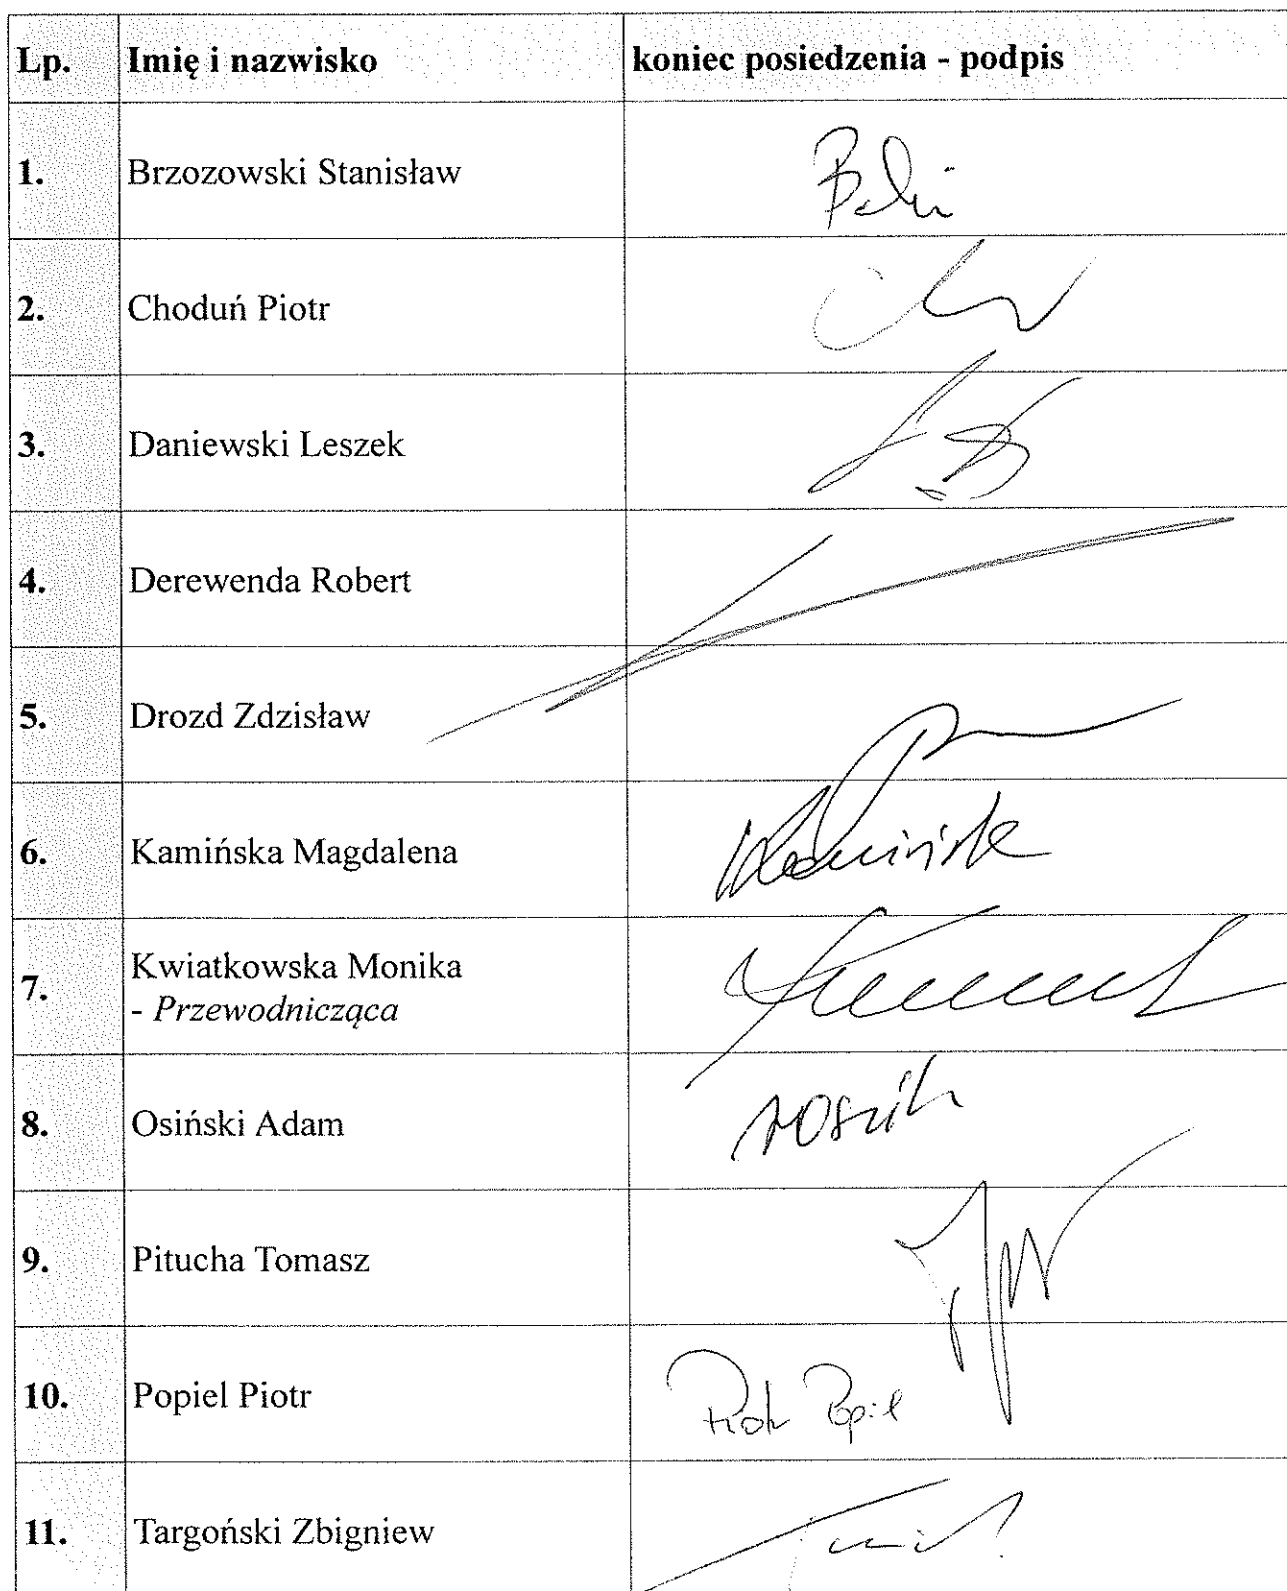 Lp. Imię i nazwisko koniec posiedzenia - podpis
1. Brzozowski Stanisław
2. Choduń Piotr
3. Daniewski Leszek
4. Derewenda Robert
5. Drozd Zdzisław
6. Kamińska Magdalena
7. Kwiatkowska Monika
- Przewodnicząca
8. Osiński Adam
9. Pitucha Tomasz
10. Popiel Piotr Piotr Popiel
11. Targoński Zbigniew